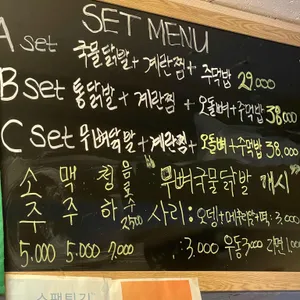 SET MENU
A set 국물닭발 + 계란찜 + 주먹밥 29,000
B set 통닭발 + 계란찜 + 오돌뼈 + 주먹밥 38,000
C set 무뼈닭발 + 계란찜 + 오돌뼈 + 주먹밥 38,000
소주 5.000
맥주 5.000
청하 7.000
음료수 2500
무뼈국물닭발 개시
사리: 오뎅+메추리알+떡 : 3.000
: 3.000 우동 3000 라면 1.000
스팸튀김